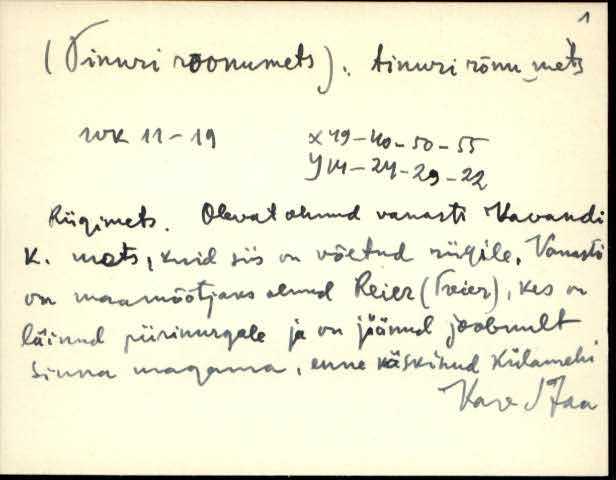 1
(Tinuri roonumets). tinuri rõnu_mets
WK 11-19
X 49-40-50-55
Y 14-24-29-22
Riigimets. Olevat olnud vanasti Kavandi
k. mets, kuid siis on võetud riigile. Vanasti
on maamõõtjaks olnud Reier (Treier), kes on
läinud piirinurgale ja on jäänud joobnult
sinna magama, enne käskinud külamehi